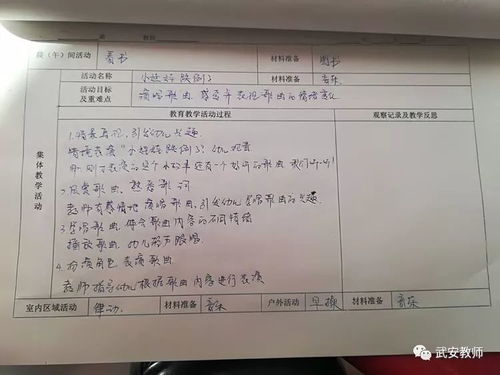 晨（午）间活动 看书 材料准备 图书
活动名称 小娃娃跌倒了 材料准备 音乐
活动目标及重难点 演唱歌曲，感受并表现歌曲的情绪变化
教育教学活动过程 观察记录及教学反思
集体教学活动
1.情景再现，引发幼儿兴趣
情境表演"小娃娃跌倒了"幼儿观看
师：刚才表演的这个小故事还有一个好听的歌曲，我们听听！
2.欣赏歌曲，熟悉歌词
老师有感情地演唱歌曲，引发幼儿学唱歌曲的兴趣
3.学唱歌曲，体会歌曲内容的不同情绪
播放歌曲，幼儿努力跟唱
4.扮演角色，表演歌曲
老师指导幼儿根据歌曲内容进行表演
室内区域活动 律动 材料准备 音乐 户外活动 早操 材料准备 音乐
武安教师